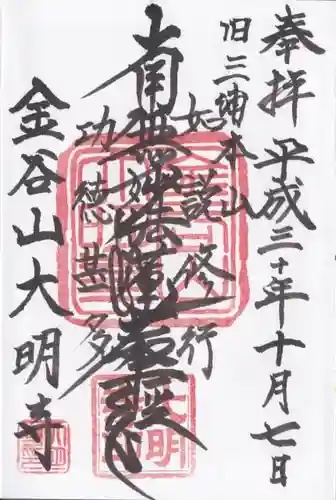 奉拝 平成三十年十月七日
旧三浦本山
如説修行
南無妙法蓮華経
功徳甚多
金谷山大明寺